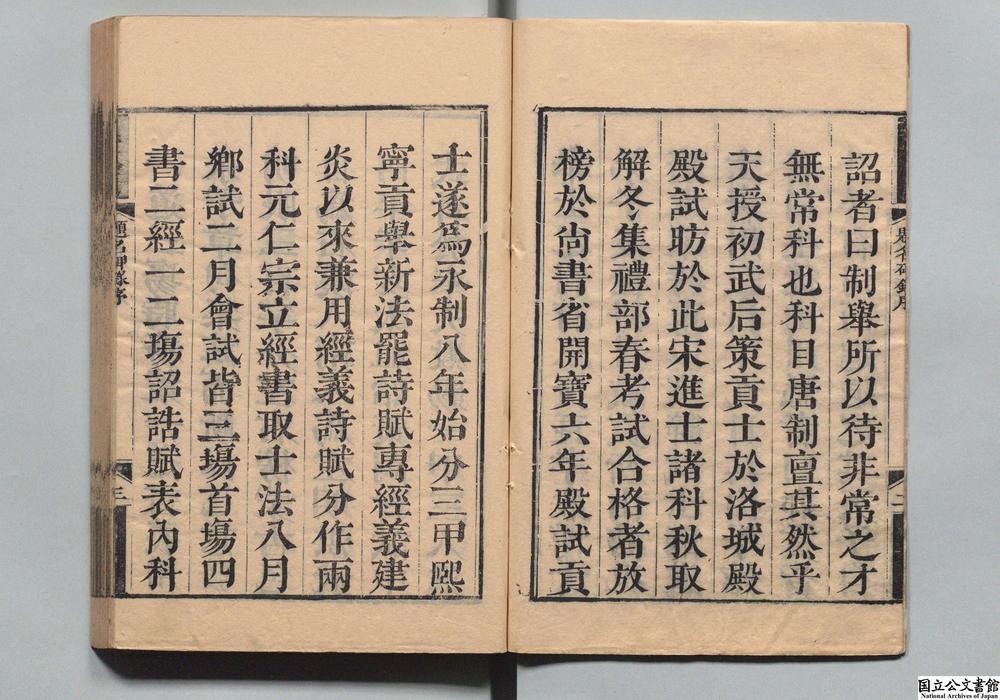 詔者曰制舉所以待非常之才
無常科也科目唐制亶其然乎
天授初武后策貢士於洛城殿
殿試昉於此宋進士諸科秋取
解冬集禮部春考試合格者放
榜於尚書省開寶六年殿試貢
士遂爲永制八年始分三甲熙
寧貢舉新法罷詩賦專經義建
炎以來兼用經義詩賦分作兩
科元仁宗立經書取士法八月
鄉試二月會試皆三塲首塲四
書二經一二塲詔誥賦表內科
題名碑錄序
二
題名碑錄序
三
国立公文書館
National Archives of Japan